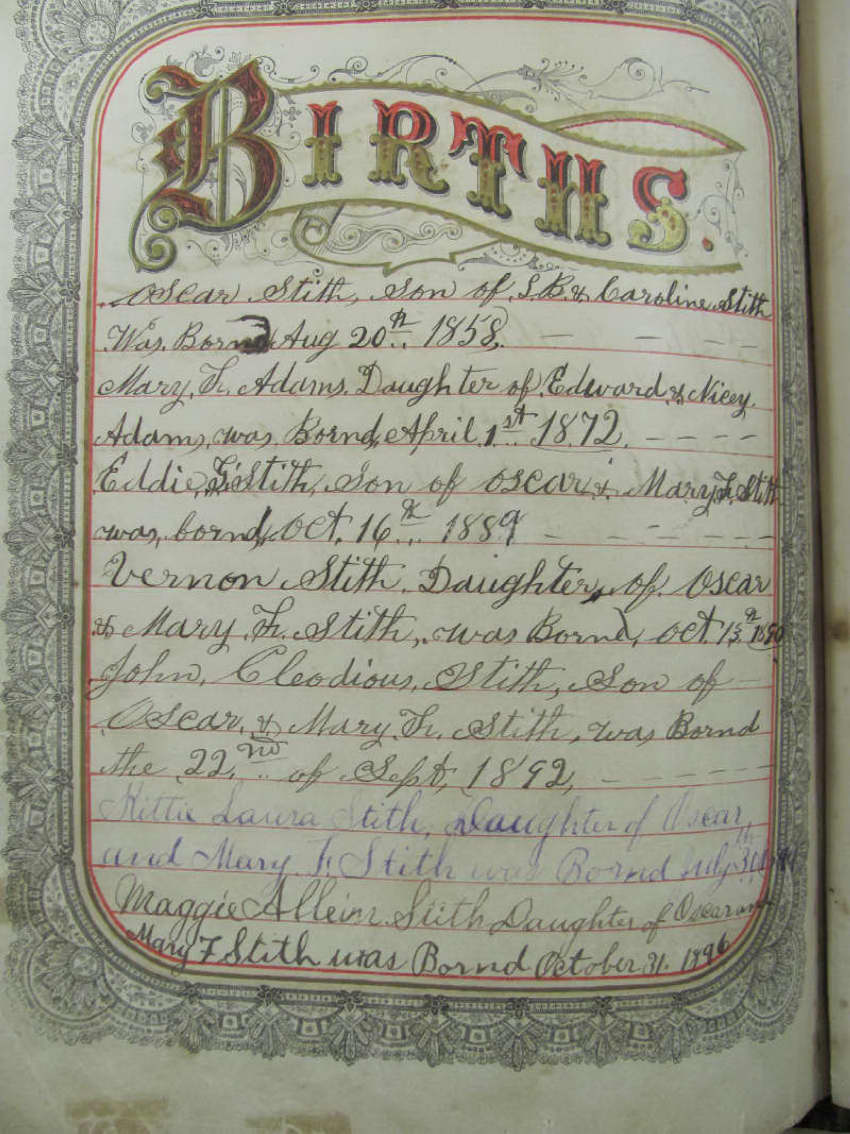 BIRTHS.
Oscar Stith, Son of S.B. & Caroline Stith
Was Bornd Aug 20th 1858.
Mary. F. Adams. Daughter of Edward & Nicey.
Adams, was Bornd, April 1st 1872.
Eddie, G. Stith, Son of Oscar & Mary F. Stith
was, bornd, Oct. 16th 1889
Vernon Stith. Daughter, of. Oscar
& Mary. F. Stith, was Bornd, Oct 13th 1890
John, Cleodious, Stith, Son of
Oscar, & Mary F. Stith, was Bornd
the 22nd of Sept, 1892,
Kittie Laura Stith, Daughter of Oscar,
and Mary. F. Stith was Bornd July
Maggie Allein Stith Daughter of Oscar and
Mary F Stith was Bornd October 31. 1896